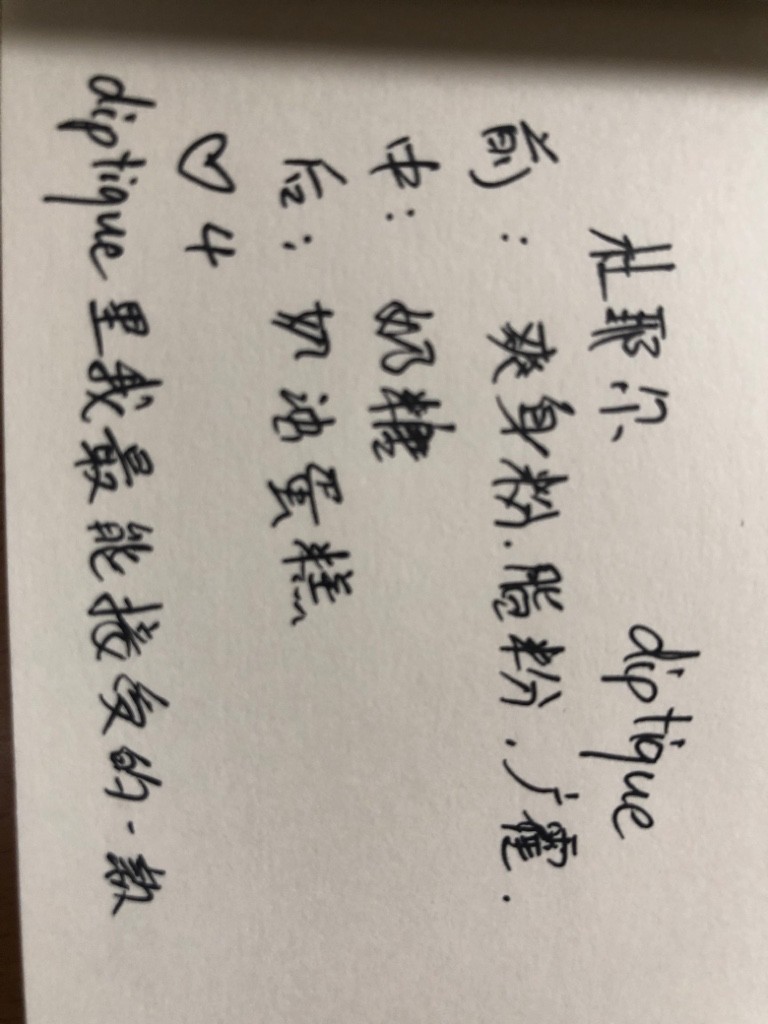 杜耶尔 diptique
前：爽身粉.脂粉.广藿.
中：奶糖
后：奶油蛋糕
♡4
diptique里我最能接受的一款